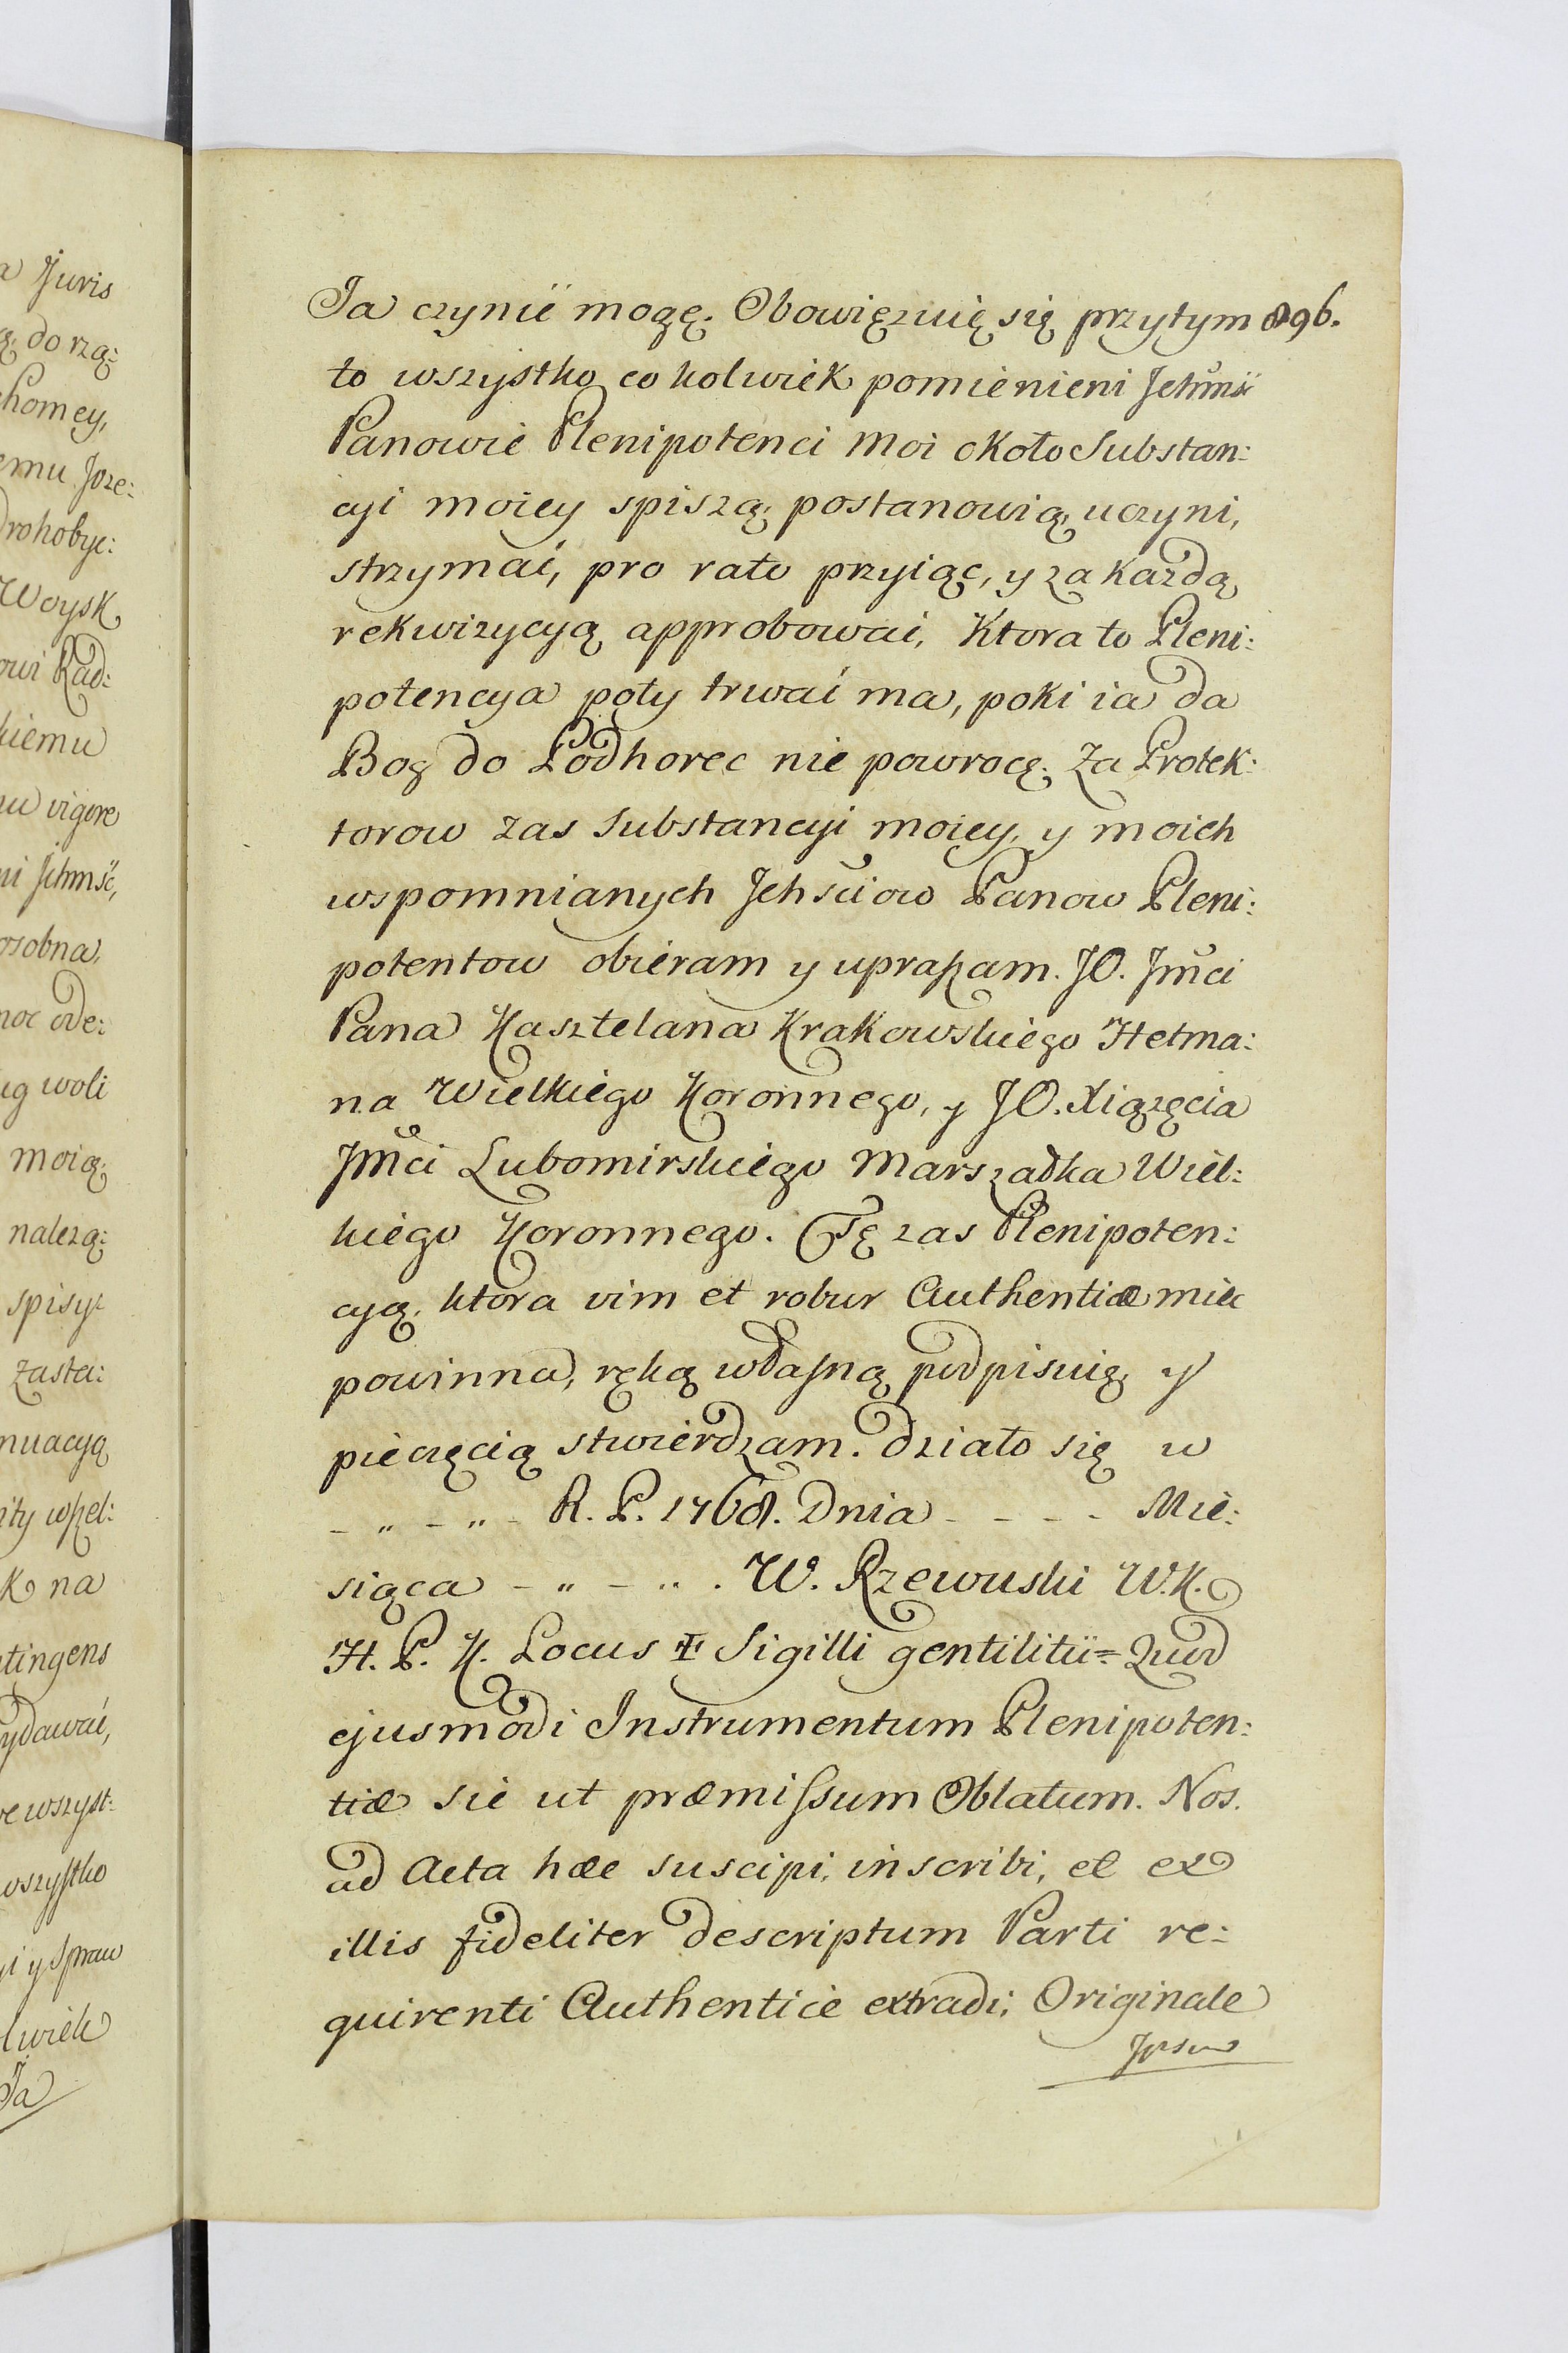 a Juris
ą, do rzą:
homey,
emu Joze:
Drohobyc:
Woysk
owi Rad:
kiemu
vigore
ni Jchmść,
osobna,
moc ode:
ug woli
moią,
nalezą:
spisy:
zasta:
nuacyą
ity wszel:
k na
tingens
ydawać,
re wszyst:
wszystko
yi y spraw
lwiek
Ja
Ja czynić mogę. Obowięzuię się przytym 896.
to wszystko co kolwiek pomienieni Jchmść
Panowie Plenipotenci moi około Substan:
cyi moiey spiszą, postanowią, uczyni,
strzymać, pro rato przyiąc, y za kazdą
rekwizycyą approbować, Ktora to Pleni:
potencya poty trwać ma, poki ia da
Bog do Podhorec nie powrocę. Za Protek:
torow zas Substancyi moiey, y moich
wspomnianych Jchściow Panow Pleni:
potentow obieram y upraszam. JO. Jmci
Pana Kasztelana Krakowskiego Hetma:
na Wielkiego Koronnego, y JO. Xiązęcia
Jmci Lubomirskiego Marszałka Wiel:
kiego Koronnego. Tę zas Plenipoten:
cyą, ktora vim et robur Authenticæ miec
powinna, ręką własną podpisuię, y
pieczęcią stwierdzam. działo się w
- " - " - R. P. 1768. Dnia - - - - Mie:
siąca - " - " . W. Rzewuski W. K.
H. P. K. Locus ✠ Sigilli gentilitii = Quod
ejusmodi Instrumentum Plenipoten:
tiæ sic ut præmissum Oblatum. Nos.
ad Acta hæc suscipi, inscribi, et ex
illis fideliter descriptum Parti re:
quirenti Authentice extradi; Originale
Ipsum